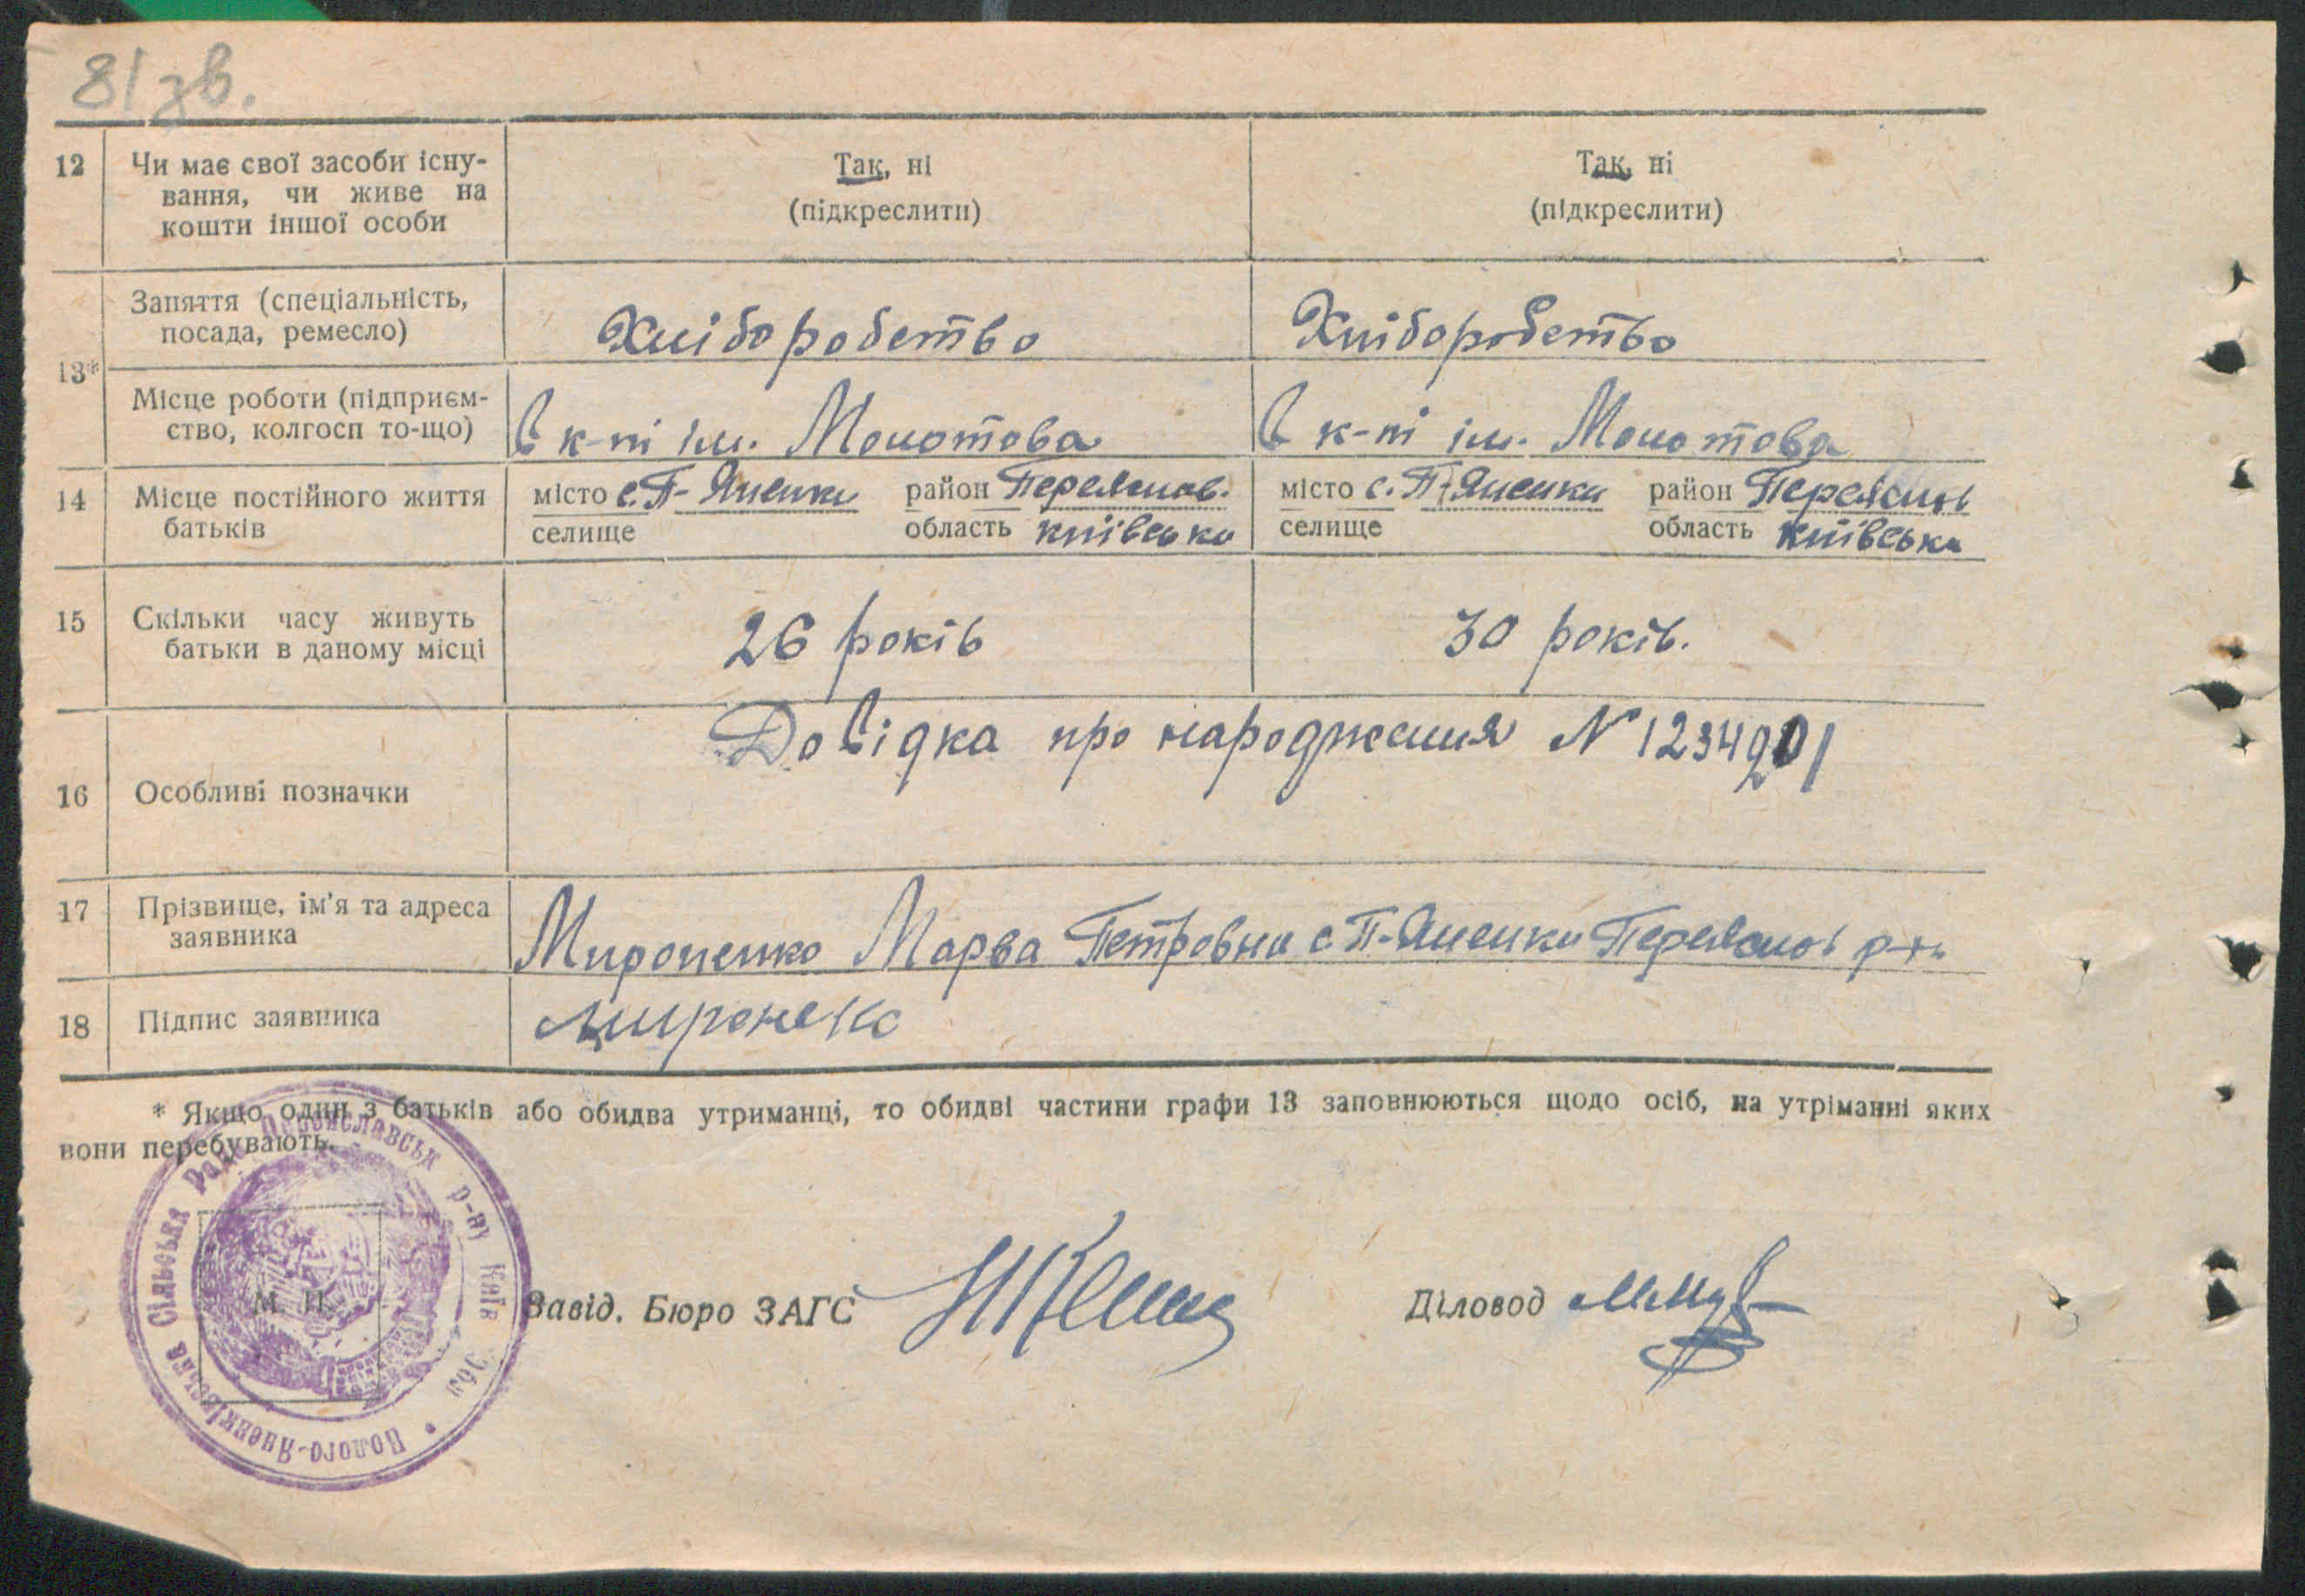 81 зв.
12 Чи має свої засоби існу- Так, ні Так, ні
вання, чи живе на
кошти іншої особи (підкреслити) (підкреслити)
Заняття (спеціальність,
посада, ремесло) Хліборобство Хліборобство
13*
Місце роботи (підприєм-
ство, колгосп то-що) В к-пі ім. Молотова В к-пі ім. Молотова
14 Місце постійного життя місто с. П-Яненки район Переяслов. місто с. П-Яненки район Переяслов
батьків селище область Київська селище область Київська
15 Скільки часу живуть
батьки в даному місці 26 років 30 років.
Довідка про народження N 1234901
16 Особливі позначки
17 Прізвище, ім'я та адреса
заявника Мироненко Марва Петровна с П-Яненки Переяслов р-н
18 Підпис заявника Миронекс
* Якщо один з батьків або обидва утриманці, то обидві частини графи 13 заповнюються щодо осіб, на утріманні яких
вони перебувають.
Полого-Яненківська Сільська Рада Переяславськ р-ну Київ Обл
М. П.
Завід. Бюро ЗАГС Діловод